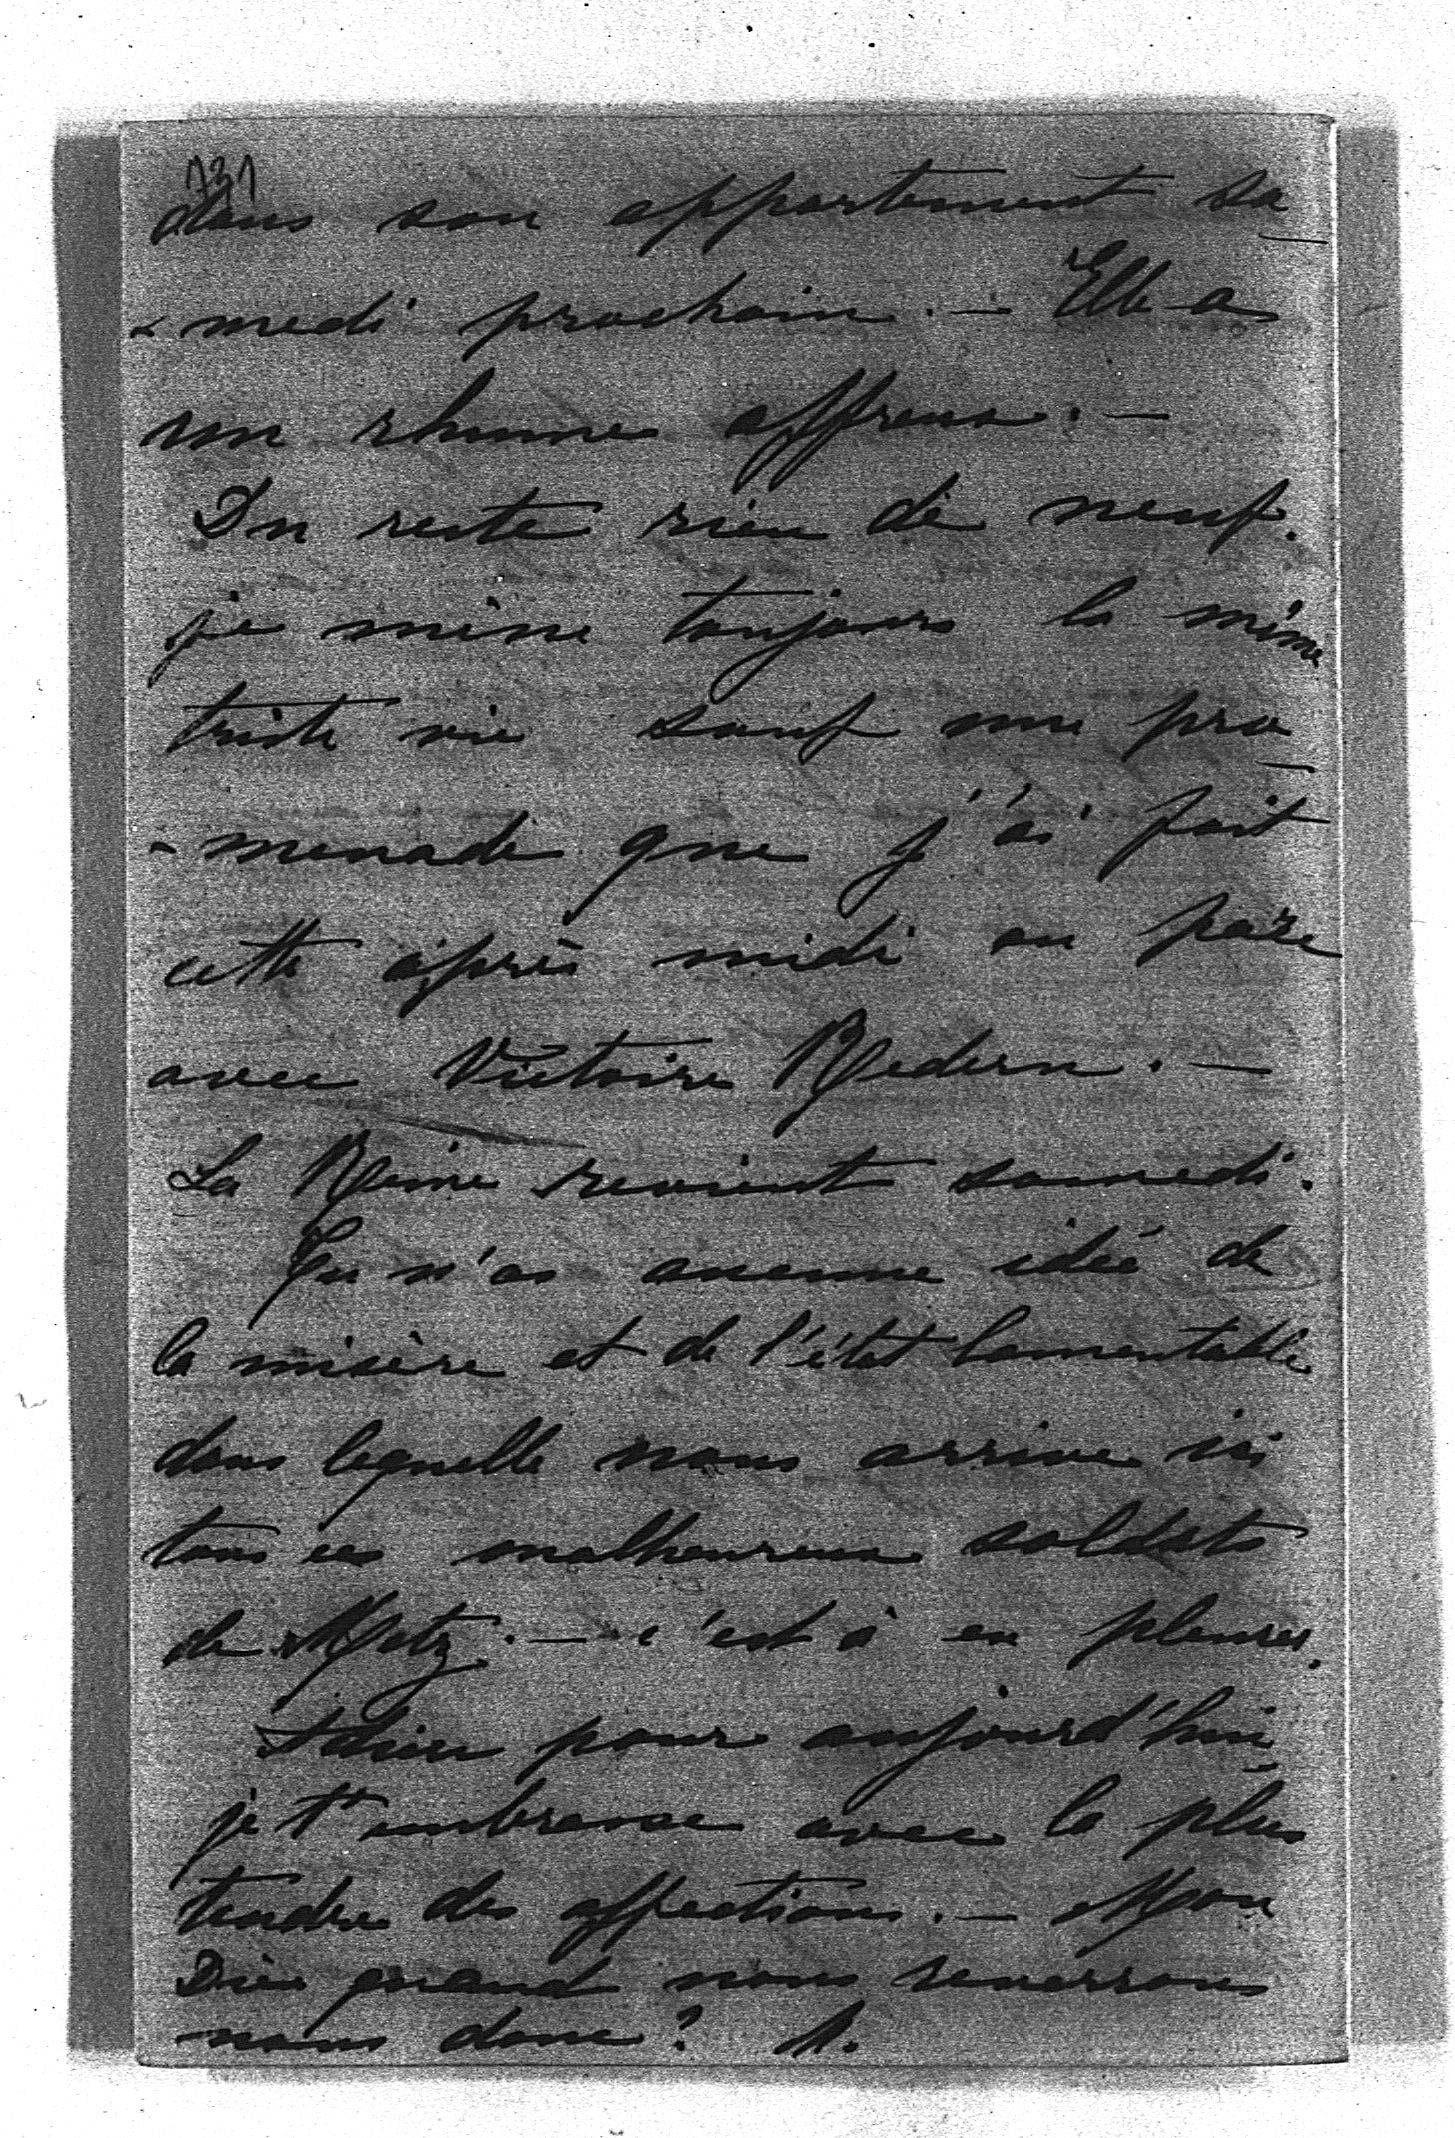 731
dans son appartement sa
- medi prochain. — Elle a
un rhume affreux. —
Du reste rien de neuf.
je mène toujours la même
triste vie sauf une pro
- menade que j'ai fait
cette après midi au parc
avec Victoire Redern. —
La Reine revient samedi.
Tu n'as aucune idée de
la misère et de l'état lamentable
dans lequelle nous arrive ici
tous ces malheureux soldats
de Metz. — c'est à en pleurer.
Adieu pour aujourd'hui
je t'embrasse avec la plus
tendre des affections. — Mon
Dieu quand nous reverrons
nous donc? A.